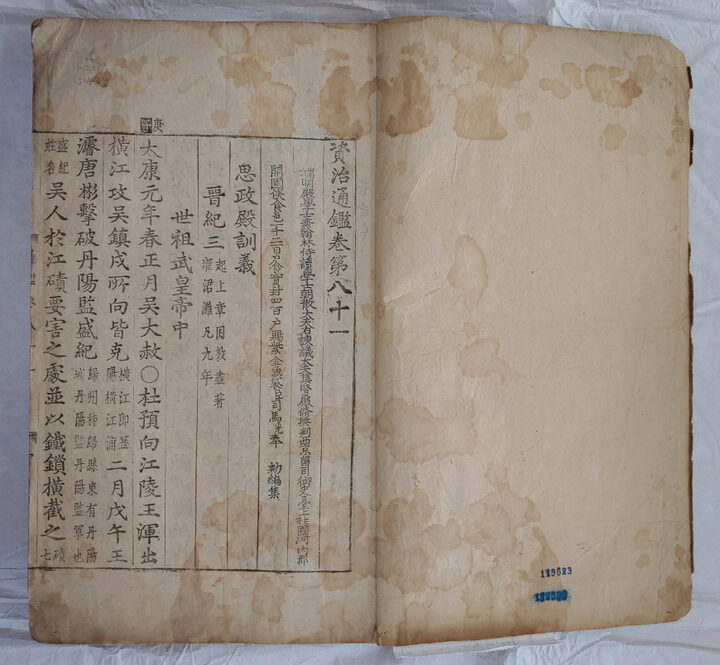 資治通鑑卷第八十一
端明殿學士兼翰林侍讀學士朝散大夫右諫議大夫集賢殿脩撰判西京留司御史臺上柱國河內郡
開國侯食邑一千三百户食實封四百户賜紫金魚袋臣司馬光奉 勑編集
思政殿訓義
晉紀三 起上章困敦盡著雍涒灘凡九年
世祖武皇帝中
庚子
太康元年春正月吳大赦○杜預向江陵王渾出
橫江攻吳鎮戍所向皆克 橫江即歷陽橫江浦 二月戊午王
濬唐彬擊破丹陽監盛紀 歸州秭歸縣東有丹陽城丹陽監丹陽監軍也
盛紀姓名 吳人於江磧要害之處並以鐵鎖橫截之 磧七
129623